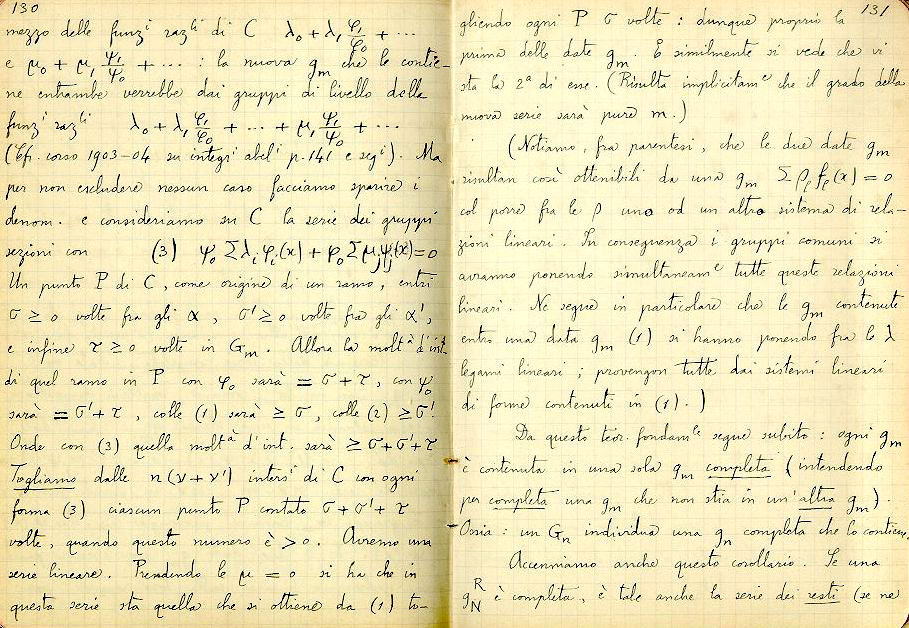 130
mezzo delle funzⁱ razˡⁱ di C λ₀ + λ₁ φ₁/φ₀ + ...
e μ₀ + μ₁ ψ₁/ψ₀ + ... : la nuova gₘ che le contie-
ne entrambe verrebbe dai gruppi di livello della
funzⁱ razˡⁱ λ₀ + λ₁ φ₁/φ₀ + ... + μ₁ ψ₁/ψ₀ + ...
(Cfr. corso 1903-04 su integⁱ abelⁱ p. 141 e segⁱ). Ma
per non escludere nessun caso facciamo sparire i
denom. e consideriamo su C la serie dei gruppi
sezioni con (3) ψ₀ Σλᵢφᵢ(x) + φ₀ Σμⱼψⱼ(x) = 0
Un punto P di C, come origine di un ramo, entri
σ ≥ 0 volte fra gli α, σ' ≥ 0 volte fra gli α',
e infine τ ≥ 0 volte in Gₘ. Allora la moltᵃ d'int.
di quel ramo in P con φ₀ sarà = σ + τ, con ψ₀
sarà = σ' + τ, colle (1) sarà ≥ σ, colle (2) ≥ σ'.
Onde con (3) quella moltᵃ d'int. sarà ≥ σ + σ' + τ
Togliamo dalle n(ν + ν') intersⁱ di C con ogni
forma (3) ciascun punto P contato σ + σ' + τ
volte, quando questo numero è > 0. Avremo una
serie lineare. Prendendo le μ = 0 si ha che in
questa serie sta quella che si ottiene da (1) to-
131
gliendo ogni P σ volte : dunque proprio la
prima delle date gₘ. E similmente si vede che vi
sta la 2ᵃ di esse. (Risulta implicitamᵉ che il grado della
nuova serie sarà pure m.)
(Notiamo, fra parentesi, che le due date gₘ
risultan così ottenibili da una gₘ Σρₗfₗ(x) = 0
col porre fra le ρ uno od un altro sistema di rela-
zioni lineari. In conseguenza i gruppi comuni si
avranno ponendo simultaneamᵉ tutte queste relazioni
lineari. Ne segue in particolare che le gₘ contenute
entro una data gₘ (1) si hanno ponendo fra le λ
legami lineari ; provengon tutte dai sistemi lineari
di forme contenuti in (1).)
Da questo teor. fondamˡᵉ segue subito : ogni gₘ
è contenuta in una sola gₘ completa (intendendo
per completa una gₘ che non stia in un'altra gₘ).
Ossia : un Gₙ individua una gₙ completa che lo contiene.
Accenniamo anche questo corollario. Se una
g_N^R è completa, è tale anche la serie dei resti (se ne